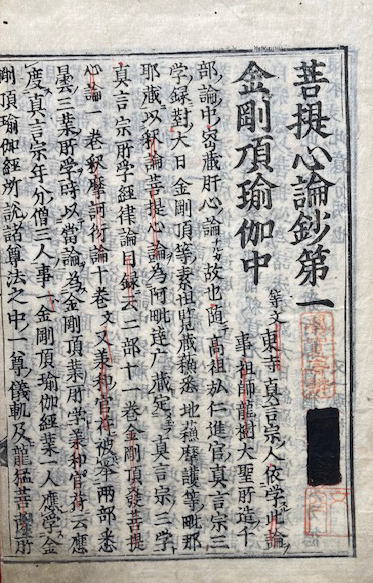 菩提心論鈔第一
金剛頂瑜伽中
等文東寺真言宗人依学此論
事祖師龍樹大聖所造千
部論中密蔵肝心論ナルカ故也随テ高祖弘仁進官真言宗三
学録対大日金剛頂等素怛覧蔵蘇悉地蘇摩護等毗那
耶蔵以釈論菩提心論為阿毗達广蔵定真言宗三学
真言宗所学経律論目録云二部十一巻金剛頂発菩提
心論一巻釈摩訶衍論十巻文又美和官符被挙両部悉
曇三業所学時以当論為金剛頂業所学美和官符云應
度真言宗年分僧三人事一金剛頂瑜伽経業一人應学金
剛頂瑜伽経所説諸尊法之中一尊儀軌及龍猛菩薩所